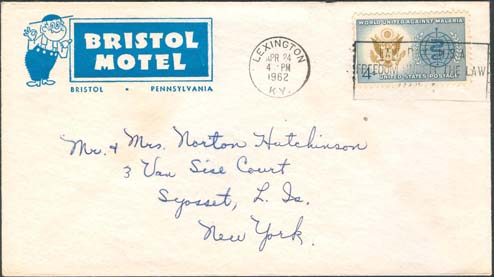 BRISTOL
MOTEL
BRISTOL • PENNSYLVANIA
LEXINGTON
APR 24
4 - PM
1962
KY.
WORLD UNITED AGAINST MALARIA
4¢
UNITED STATES POSTAGE
LAW
Mr. & Mrs. Norton Hutchinson
3 Van Sise Court
Syosset, L. Is.
New York.